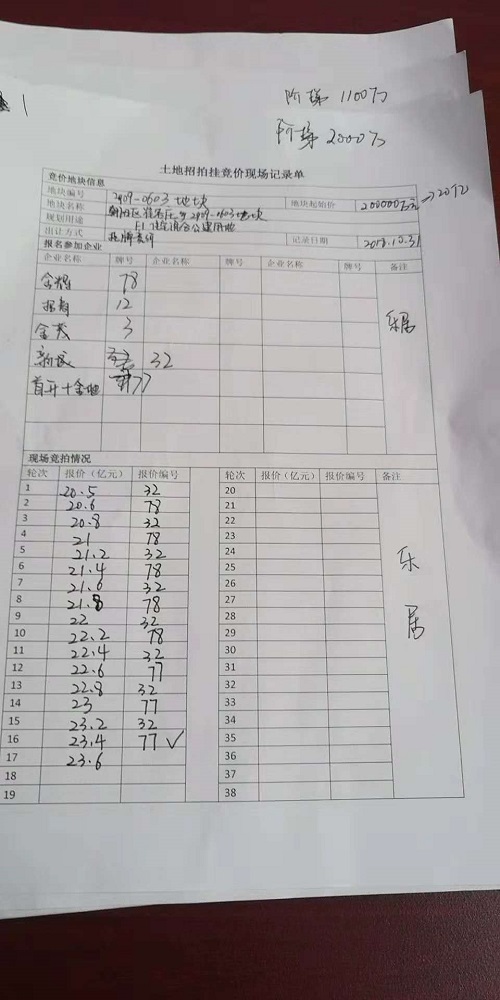 1
阶梯 1100万
阶梯 2000万
土地招拍挂竞价现场记录单
竞价地块信息
地块编号 2909-0603 地块 地块起始价 200000万元→20亿
地块名称 朝阳区 2909-0603地块
规划用途 F1 住宅混合公建用地
出让方式 挂牌 记录日期 2018.10.31
报名参加企业
企业名称 牌号 企业名称 牌号 企业名称 牌号 备注
金辉 78
招商 12
金茂 3
新城 32
首开+金地 77
乐居
现场竞拍情况
轮次 报价（亿元） 报价编号 轮次 报价（亿元） 报价编号 备注
1 20.5 32 20
2 20.6 78 21
3 20.8 32 22
4 21 78 23
5 21.2 32 24
6 21.4 78 25
7 21.6 32 26
8 21.8 78 27
9 22 32 28
10 22.2 78 29
11 22.4 32 30
12 22.6 77 31
13 22.8 32 32
14 23 77 33
15 23.2 32 34
16 23.4 77 ✓ 35
17 23.6 36
18 37
19 38
乐
居